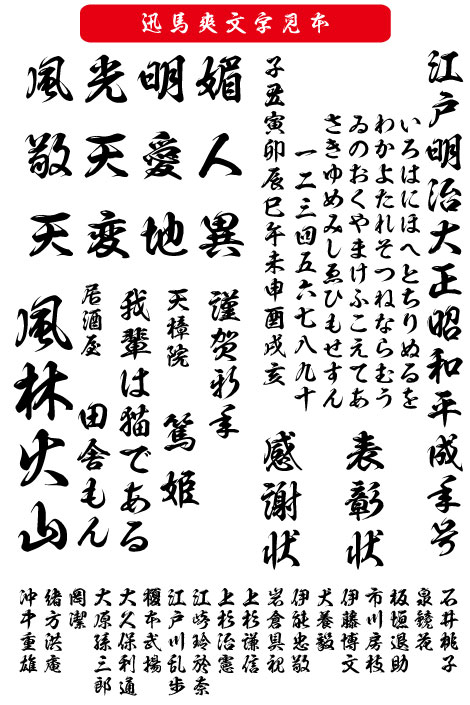 迅馬爽文字見本
江戸明治大正昭和平成年号
いろはにほへとちりぬるを
わかよたれそつねならむう
ゐのおくやまけふこえてあ
さきゆめみしゑひもせすん
一二三四五六七八九十
子丑寅卯辰巳午未申酉戌亥
表彰状
感謝状
風光明媚
敬天愛人
天変地異
謹賀新年
天樟院 篤姫
我輩は猫である
居酒屋 田舎もん
風林火山
石井桃子
泉鏡花
板垣退助
市川房枝
伊藤博文
犬養毅
伊能忠敬
岩倉具視
上杉謙信
上杉治憲
江崎玲於奈
江戸川乱歩
榎本武揚
大久保利通
大原孫三郎
岡潔
緒方洪庵
沖中重雄